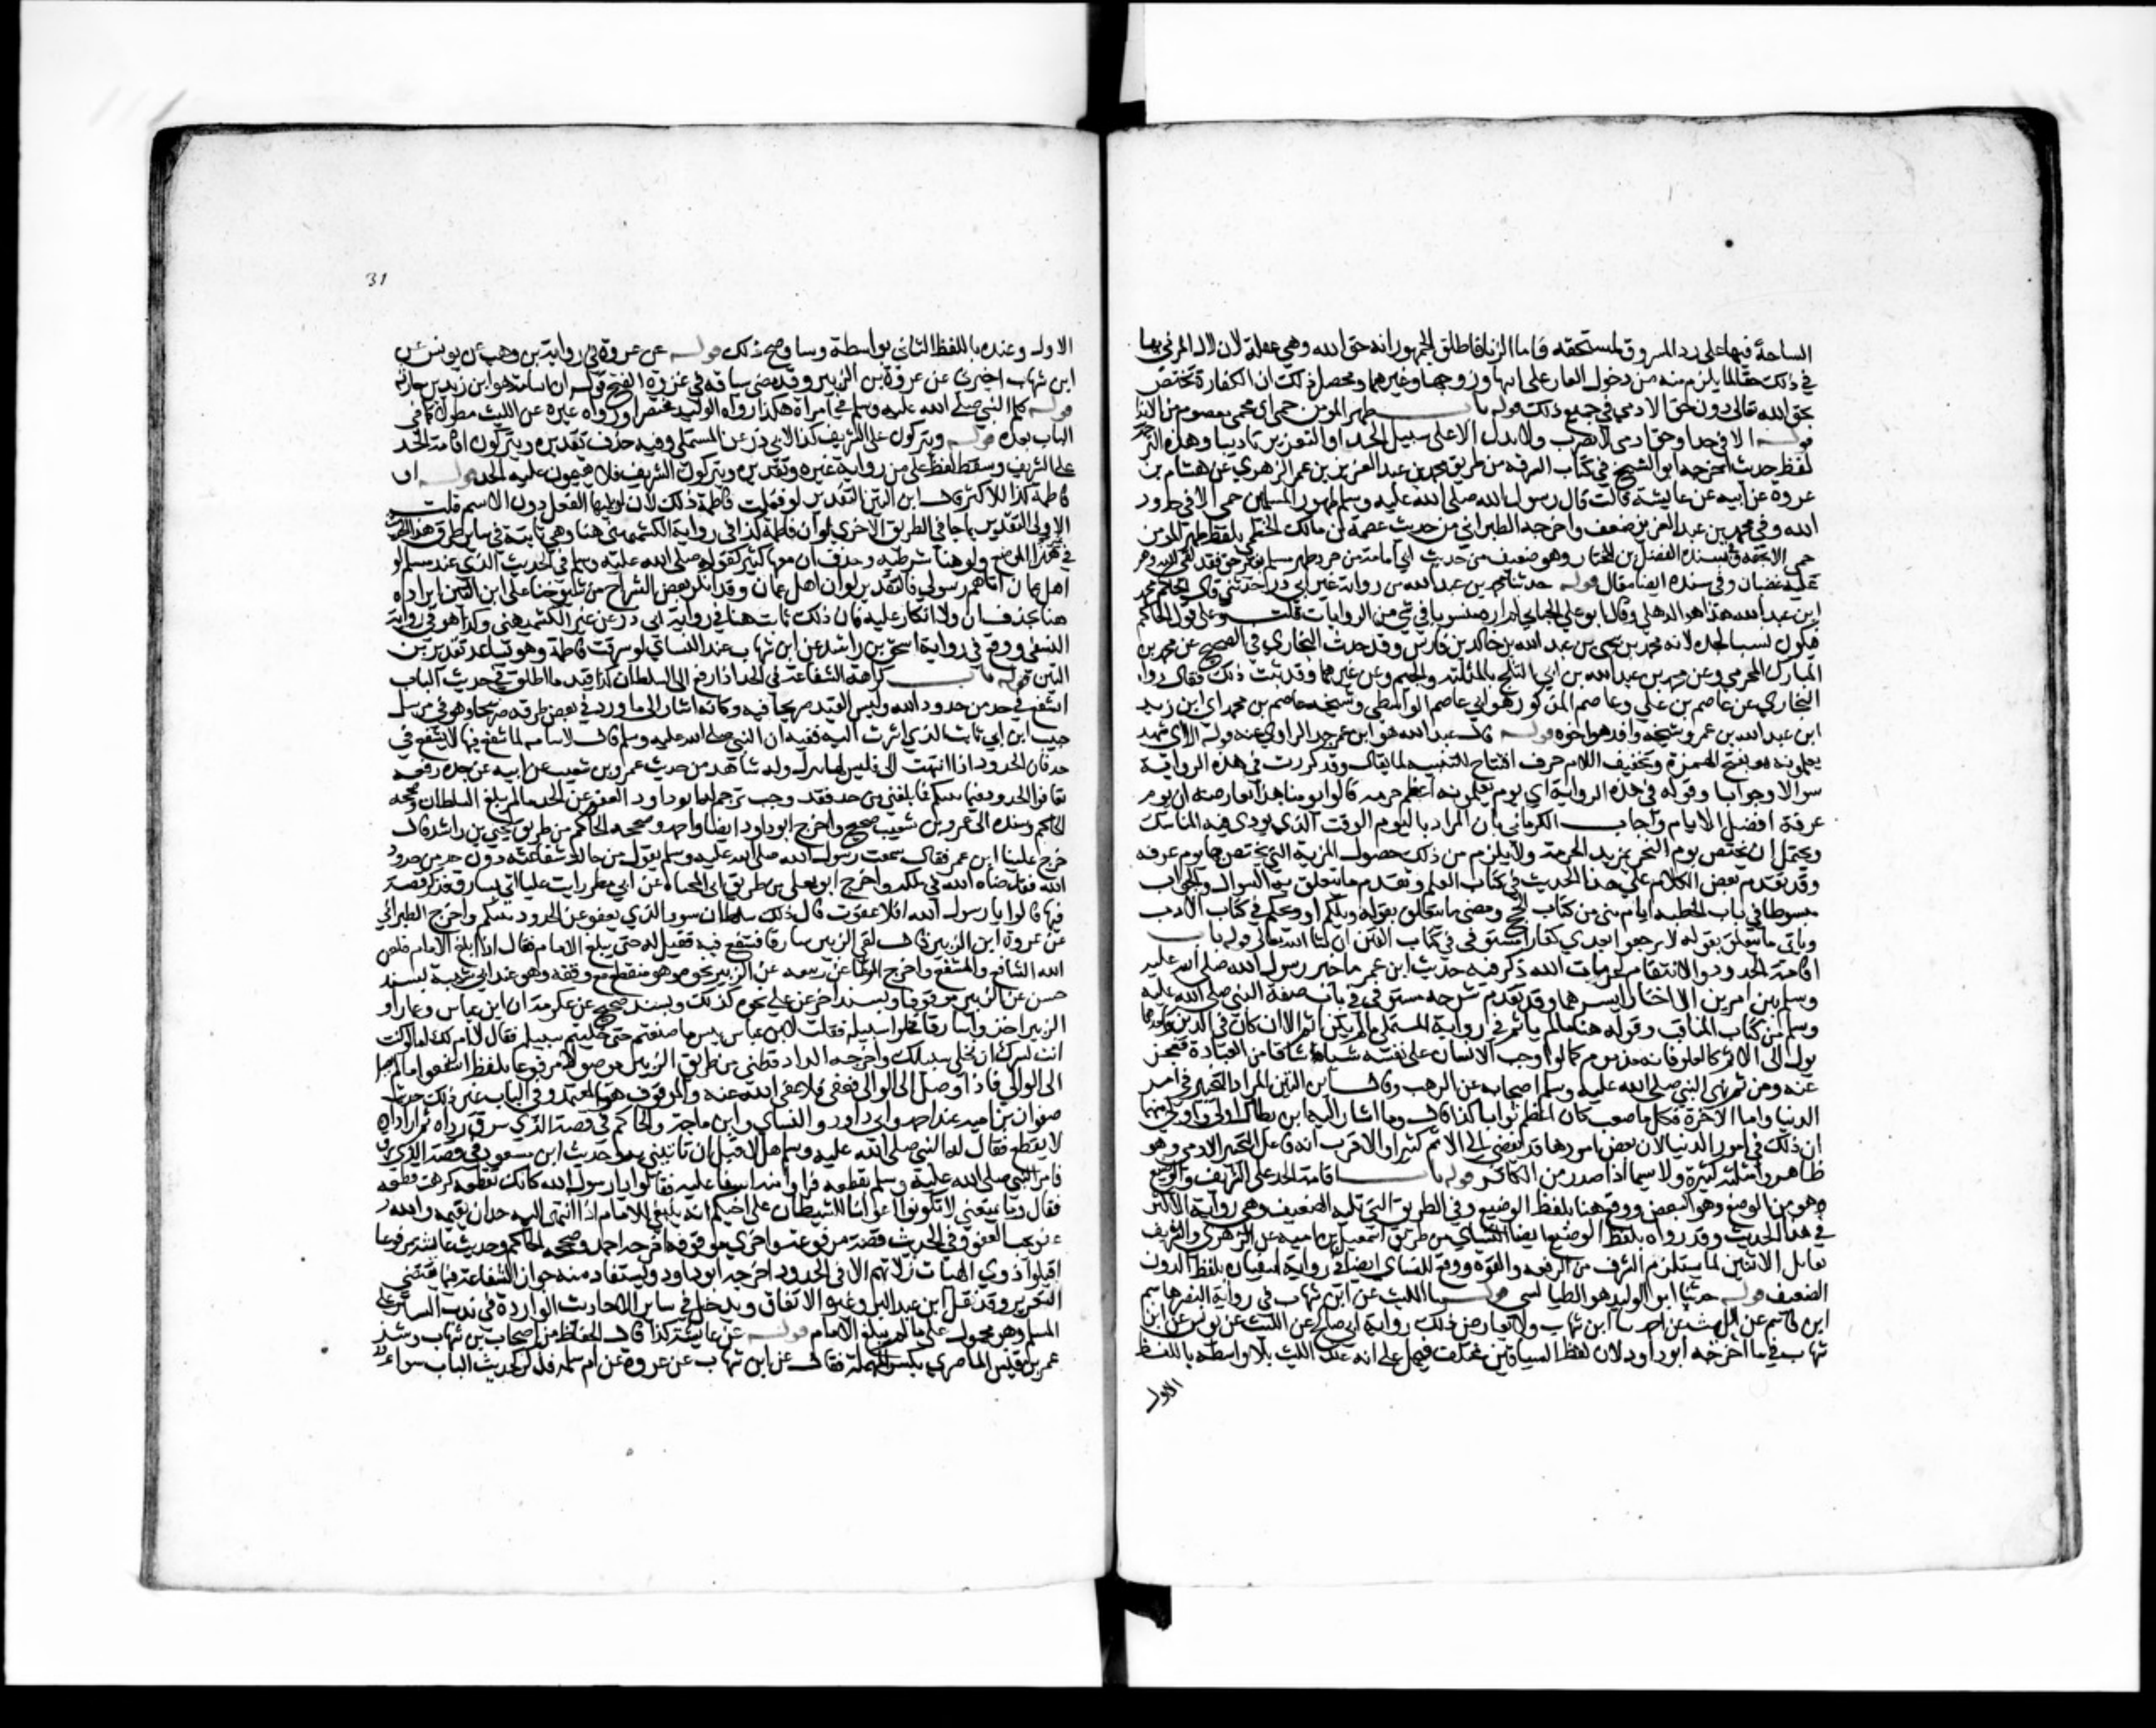 المسامحة فيها على رد المسروق لمستحقه فاما الزنا فاطلق الجمهور انه حق الله وهي غفلة لان لال المزني بها
في ذلك حقا لما يلزم منه من دخول العار على ابيها وزوجها وغيرهما ومحصل ذلك ان الكفارة تختص
بحق الله تعالى دون حق الادمي في جميع ذلك قوله باب ظهر المومن حمى اي محمي معصوم من الايذا
قوله الا في حد او حق اي لا يضرب ولا يذل الا على سبيل الحد او التعزير تاديبا وهذه الترجمة
لفظ حديث اخرجه ابو الشيخ في كتاب السرقة من طريق محمد بن عبد العزيز بن عمر الزهري عن هشام بن
عروة عن ابيه عن عايشة قالت قال رسول الله صلى الله عليه وسلم ظهور المسلمين حمى الا في حدود
الله وفي محمد بن عبد العزيز ضعف واخرجه الطبراني من حديث عصمة بن مالك الخطمي بلفظ ظهر المومن
حمى الا بحقه وفي سنده الفضل بن المختار وهو ضعيف ومن حديث ابي امامة من جرد ظهر مسلم بغير حق لقي الله وهو
عليه غضبان وفي سنده ايضا مقال قوله حدثنا محمد بن عبد الله من رواية غير ابي ذر حدثني قال الحاكم محمد
ابن عبد الله هذا هو الذهلي وقال ابو علي الجياني لم اره منسوبا في شي من الروايات قلت وعلى قول الحاكم
فيكون نسب لجده لانه محمد بن يحيى بن عبد الله بن خالد بن فارس وقد حدث البخاري في الصحيح عن محمد بن
المبارك المخرمي وعن محمد بن عبد الله بن ابي الثلج بالمثلثة والجيم وعن غيرهما وقد بينت ذلك فقال رواه
البخاري عن عاصم بن علي وعاصم المذكور هو ابي عاصم الواسطي وشيخه عاصم بن محمد اي ابن زيد
ابن عبد الله بن عمر وشيخه واقد هو اخوه قوله قال عبد الله هو ابن عمر جد الراوي عنه قوله الا اي شهر
تعلمونه هو بفتح الهمزة وتخفيف اللام حرف افتتاح للتنبيه لما يقال وقد كررت في هذه الرواية
سوالا وجوابا وقوله في هذه الرواية اي يوم تعلمونه اعظم حرمة قالوا يومنا هذا يعارضه ان يوم
عرفة افضل الايام واجاب الكرماني بان المراد باليوم الوقت الذي يودى فيه المناسك
ويحتمل ان يختص يوم النحر بمزيد الحرمة ولا يلزم من ذلك حصول المزية التي يختص بها يوم عرفة
وقد تقدم بعض الكلام على هذا الحديث في كتاب العلم وتقدم ما يتعلق به السوال والجواب
مبسوطا في باب الخطبة ايام منى من كتاب الحج ومضى ما يتعلق بقوله ويلكم او ويحكم في كتاب الادب
وياتي ما يتعلق بقوله لا ترجعوا بعدي كفارا مستوفى في كتاب الفتن ان شا الله تعالى قوله باب
اقامة الحدود والانتقام لحرمات الله ذكر فيه حديث ابن عمر ما خير رسول الله صلى الله عليه
وسلم بين امرين الا اختار ايسرهما وقد تقدم شرحه مستوفى في باب صفة النبي صلى الله عليه
وسلم من كتاب المناقب وقوله هنا ما لم ياثم في رواية المستملي ما لم يكن اثم الا ان كان في الدين
يول الى الاثم كالغلو فانه مذموم كما لو اوجب الانسان على نفسه شيا شاقا من العبادة فعجز
عنه ومن ثم نهى النبي صلى الله عليه وسلم اصحابه عن الترهب وقال ابن التين المراد التخيير في امر
الدنيا واما الاخرة فكلما صعب كان اعظم ثوابا كذا قال وما اشار اليه ابن بطال اولى واولى منهما
ان ذلك في امور الدنيا لان بعض امورها قد يفضي الى الاثم كثيرا والاقرب ان فاعل التخيير الادمي وهو
ظاهر وامثلته كثيرة ولا سيما اذا صدر من الكافر قوله باب اقامة الحد على الشريف والوضيع
وهو من الوضع وهو النقص ووقع هنا بلفظ الوضيع وفي الطريق التي تليه الضعيف وهي رواية الاكثر
في هذا الحديث وقد رواه بلفظ الوضيع ايضا النسائي من طريق اسمعيل بن امية عن الزهري والشريف
يقابل الاثنين لما يستلزم الشرف من الرفعة والقوة ووقع للنساي ايضا في رواية لسفيان بلفظ الدون
الضعيف قوله حدثنا ابو الوليد هو الطيالسي قوله حدثنا الليث عن ابن شهاب في رواية النضر هاشم
ابن القاسم عن الليث عن احمد ثنا ابن شهاب ولا يعارض ذلك رواية ابي صالح عن الليث عن يونس عن ابن
شهاب فيما اخرجه ابو داود لان لفظ السياقين مختلف فيحمل على انه عند الليث بلا واسطة باللفظ
الاول
31
الاول وعنده باللفظ الثاني بواسطة وساوضح ذلك قوله عن عروة في رواية بن وهب عن يونس عن
ابن شهاب اخبرني عن عروة بن الزبير وقد مضى سياقه في غزوة الفتح قوله ان اسامة هو ابن زيد بن حارثة
قوله كلم النبي صلى الله عليه وسلم في امراة هكذا رواه ابو الوليد مختصرا ورواه غيره عن الليث مطولا كما في
الباب بعده قوله ويتركون على الشريف كذا لابي ذر عن المستملي وفيه حذف تقديره ويتركون اقامة الحد
على الشريف وسقط لفظ على من رواية غيره وتقديره ويتركون الشريف فلا يقيمون عليه الحد قوله لو
فاطمة كذا للاكثر قال ابن التين التقدير لو فعلت فاطمة ذلك لان لو يليها الفعل دون الاسم قلت
الاولى التقدير بما جا في الطريق الاخرى لو ان فاطمة كذا في رواية الكشميهني هنا وهي ثابتة في ساير طرق هذا الحديث
في هذا الموضع ولو هنا شرطية وحذف ان معها كثير كقوله صلى الله عليه وسلم في الحديث الذي عند مسلم لو
اهل عمان اتاهم رسولي فالتقدير لو ان اهل عمان وقد انكر بعض الشراح من شيوخنا على ابن التين ايراده
هنا بحذف ان ولا انكار عليه فان ذلك ثابت هنا في رواية ابي ذر عن غير الكشميهني وكذا هو في رواية
النسفي ووقع في رواية اسحق بن راشد عن ابن شهاب عند النساي لو سرقت فاطمة وهو يساعد تقدير بن
التين قوله باب كراهة الشفاعة في الحد اذا رفع الى السلطان كذا قيد ما اطلق في حديث الباب
اتشفع في حد من حدود الله وليس القيد صريحا فيه وكانه اشار الى ما ورد في بعض طرقه صريحا وهو في مرسل
حبيب ابن ابي ثابت الذي اشرت اليه ففيه ان النبي صلى الله عليه وسلم قال لاسامة لما شفع فيها لا تشفع في
حد فان الحدود اذا انتهت الى فليس لها مترك وله شاهد من حديث عمرو بن شعيب عن ابيه عن جده رفعه
تعافوا الحدود فيما بينكم فما بلغني من حد فقد وجب ترجم له ابو داود العفو عن الحد ما لم يبلغ السلطان وصححه
الحاكم وسنده الى عمرو بن شعيب صحيح واخرج ابو داود ايضا واحمد وصححه الحاكم من طريق يحيى بن راشد قال
خرج علينا ابن عمر فقال سمعت رسول الله صلى الله عليه وسلم يقول من حالت شفاعته دون حد من حدود
الله فقد ضاد الله في ملكه واخرج ابو يعلى من طريق ابي المحياة عن ابي مطر رايت عليا اتي بسارق فذكر قصة
فيها قالوا يا رسول الله افلا عفوت قال ذلك سلطان سوء الذي يعفو عن الحدود بينكم واخرج الطبراني
عن عروة ابن الزبير قال لقي الزبير سارقا فشفع فيه فقيل له حتى يبلغ الامام فقال اذا بلغ الامام فلعن
الله الشافع والمشفع واخرج الموطا عن ربيعة عن الزبير نحوه وهو منقطع مع وقفه وهو عند ابن ابي شيبة بسند
حسن عن الزبير موقوفا وبسند اخر عن علي نحوه كذلك وبسند صحيح عن عكرمة ان ابن عباس وعمارا و
الزبير اخذوا سارقا فخلوا سبيله فقلت لابن عباس بيس ما صنعتم حتى خليتم سبيله فقال لا ام لك اما لو كنت
انت لسرك ان يخلى سبيلك واخرجه الدارقطني من طريق الزبير موصولا مرفوعا بلفظ اشفعوا ما لم يصل
الى الوالي فاذا وصل الى الوالي فعفى فلا عفى الله عنه والموقوف هو المعتمد وفي الباب غير ذلك حديث
صفوان بن امية عند احمد وابي داود والنساي وابن ماجة والحاكم في قصة الذي سرق رداه ثم اراد ان
لا يقطع فقال له النبي صلى الله عليه وسلم هلا قبل ان تاتيني به وحديث ابن مسعود في قصة الذي سرق
فامر النبي صلى الله عليه وسلم بقطعه فراوا منه اسفا عليه فقالوا يا رسول الله كانك كرهت قطعه
فقال وما يمنعني لا تكونوا اعوانا للشيطان على اخيكم انه ينبغي للامام اذا انتهى اليه حد ان يقيمه والله
عفو يحب العفو وفي الحديث قصة مرفوعة واخرى موقوفة اخرجه احمد وصححه الحاكم وحديث عايشة مرفوعا
اقيلوا ذوي الهيات زلاتهم الا في الحدود اخرجه ابو داود ويستفاد منه جواز الشفاعة فيما يقتضي
التعزير وقد نقل ابن عبد البر وغيره الاتفاق ويدخل في ساير الاحاديث الواردة في ندب الستر على
المسلم وهو محمول على ما لم يبلغ الامام قوله عن عايشة كذا قال الحفاظ من اصحاب بن شهاب وشذ
عمر بن قيس الماصر بكسر المهملة فقال عن ابن شهاب عن عروة عن ام سلمة فذكر حديث الباب سواء